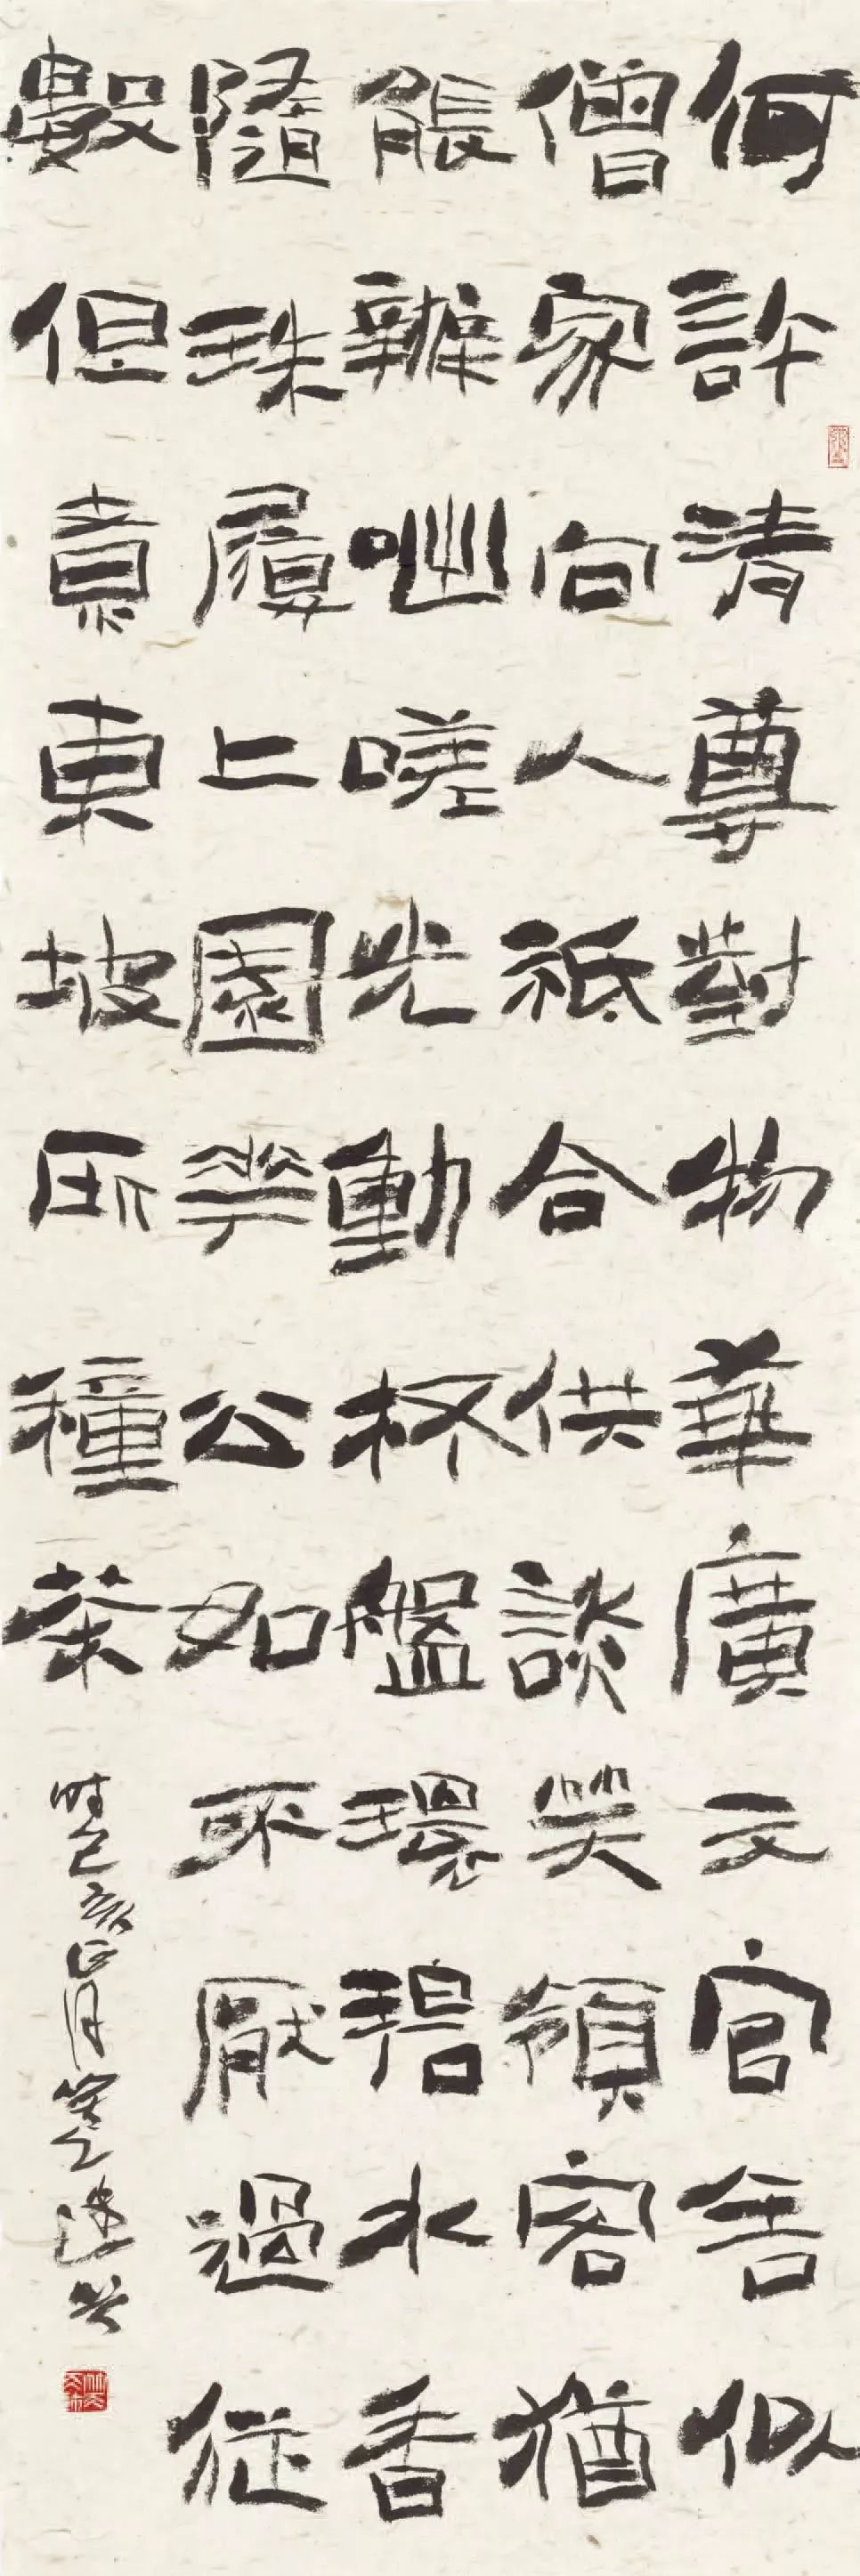 何許清尊對物華廣文官舍似
僧家向人祇合供談笑領客猶
能辦咄嗟光動杯盤環碧水香
隨珠履上園花公如不厭過從
數但責東坡所種茶
時己亥正月